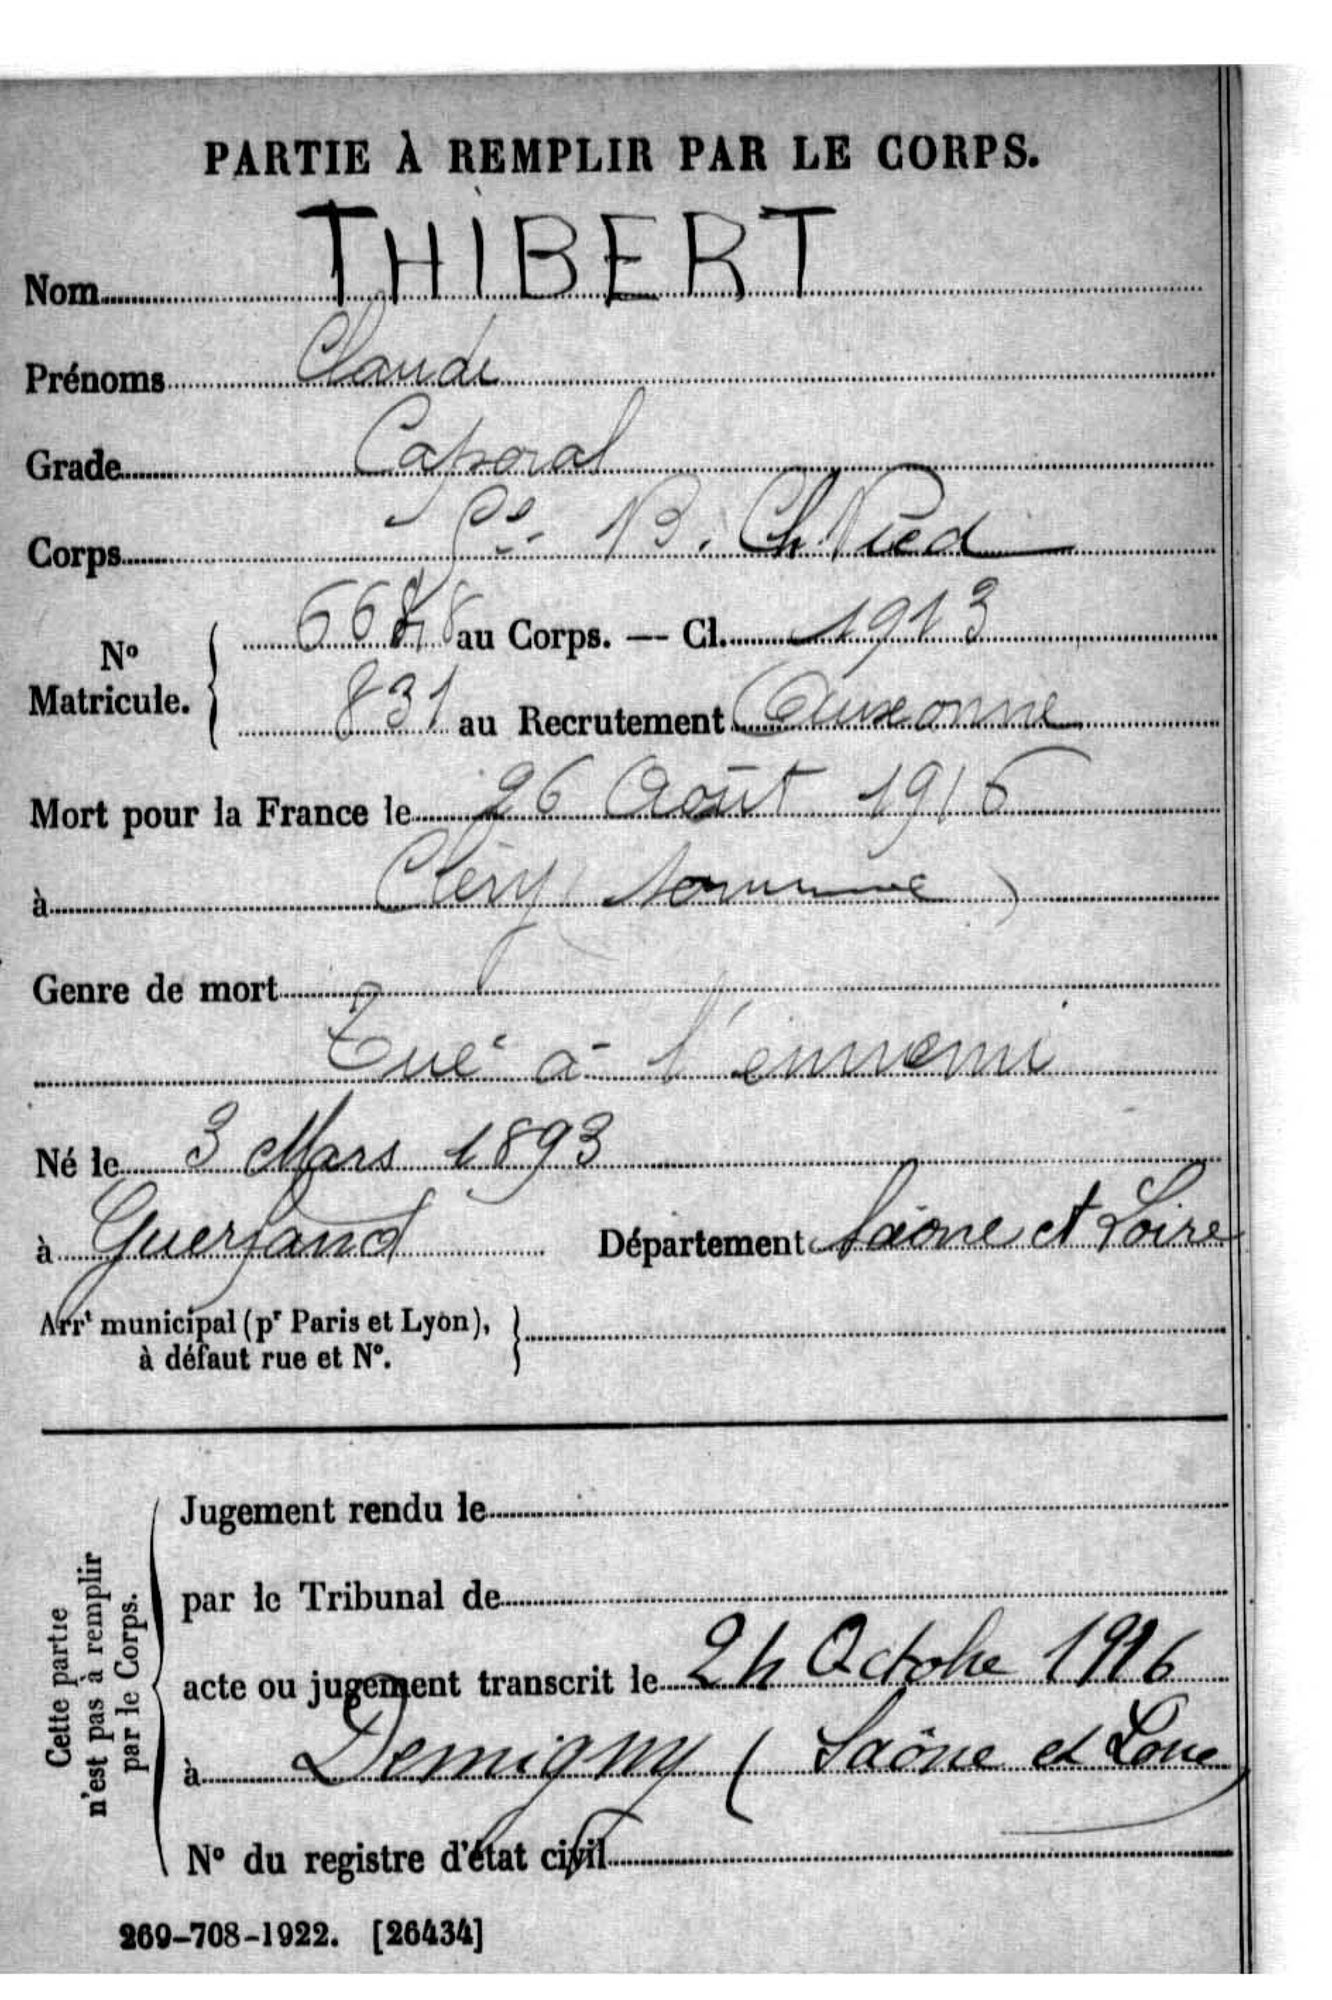 PARTIE À REMPLIR PAR LE CORPS.
Nom THIBERT
Prénoms Claude
Grade Caporal
Corps B. Ch. Pied
N° Matricule. au Corps. — Cl. 1913
831 au Recrutement Auxonne
Mort pour la France le 26 Août 1916
à Cléry (Somme)
Genre de mort
Tué à l'ennemi
Né le 3 Mars 1893
à Guerfand Département Saône et Loire
Arrt municipal (pr Paris et Lyon),
à défaut rue et N°.
Cette partie
n'est pas à remplir
par le Corps.
Jugement rendu le
par le Tribunal de
acte ou jugement transcrit le 24 Octobre 1916
à Demigny (Saône et Loire
N° du registre d'état civil
269-708-1922. [26434]